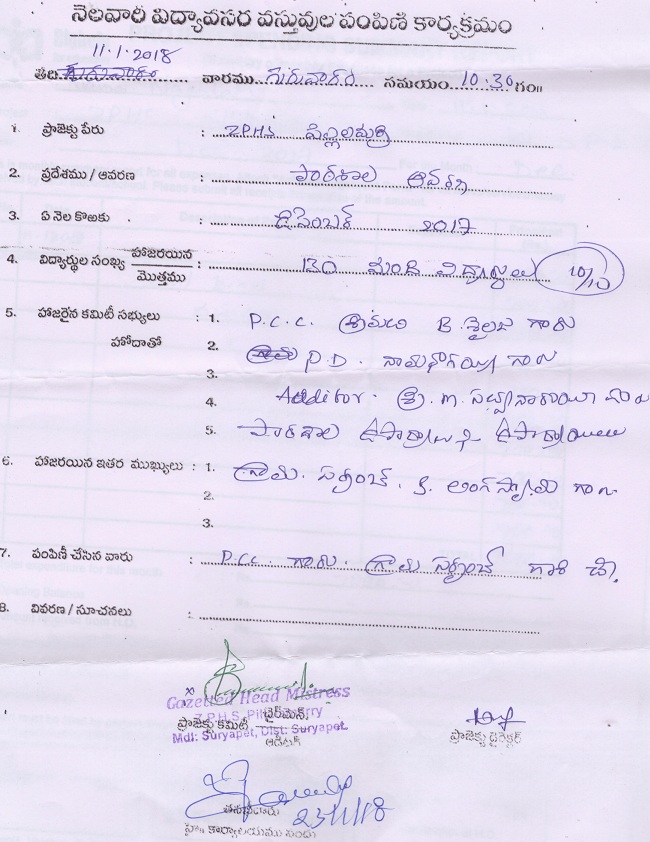 నెలవారి విద్యావసర వస్తువుల పంపిణి కార్యక్రమం
11.1.2018
తేది గురువారం వారము గురువారం సమయం 10:30 గం॥
1. ప్రాజెక్టు పేరు : Z.P.H.S పిల్లలమర్రి
2. ప్రదేశము / ఆవరణ : పాఠశాల ఆవరణ
3. ఏ నెల కొఱకు : డిసెంబర్ 2017
4. విద్యార్థుల సంఖ్య హాజరయిన / మొత్తము : 130 మంది విద్యార్థులు 10/10
5. హాజరైన కమిటీ సభ్యులు : 1. P.C.C. శ్రీమతి B. శైలజ గారు
హోదాతో 2. P.D. గారు
3.
4. Auditor. శ్రీ. M. సత్యనారాయణ గారు
5. పాఠశాల ఉపాధ్యాయులు
6. హాజరయిన ఇతర ముఖ్యులు : 1. గ్రామ. సర్పంచ్. K. లింగస్వామి గారు
2.
3.
7. పంపిణీ చేసిన వారు : P.C.C. గారు. గ్రామ సర్పంచ్
8. వివరణ / సూచనలు :
Gazetted Head Mistress
ప్రాజెక్టు కమిటీ ఛైర్మెన్
Z.P.H.S, Pillalamarry
Mdl: Suryapet, Dist: Suryapet.
ఆడిటర్
ప్రాజెక్టు డైరెక్టర్
23/1/18